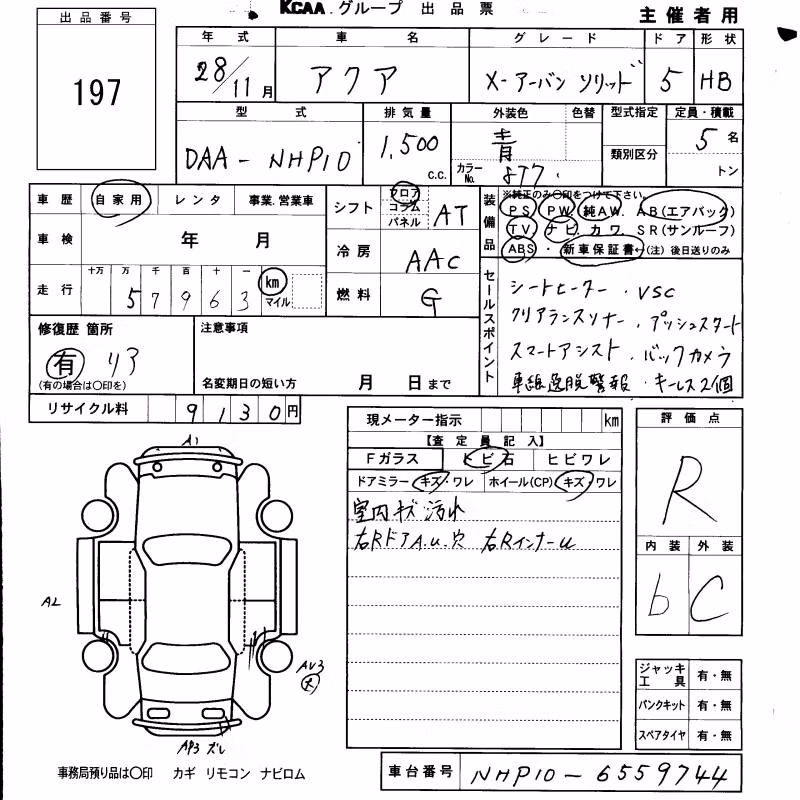 KCAA.グループ 出品票
主催者用
出品番号
197
年式 車名 グレード ドア 形状
28/11月 アクア X-アーバン ソリッド 5 HB
型式 排気量 外装色 色替 型式指定 定員・積載
類別区分
DAA-NHP10 1,500 c.c. 青 カラーNo. 8T7 5名
トン
車歴 自家用 レンタ 事業.営業車
車検 年 月
走行 十万 万 千 百 十 一
5 7 9 6 3 km マイル
シフト フロア コラム パネル AT
冷房 AAC
燃料 G
装備品
※純正のみ○印をつけて下さい。
PS PW 純AW. AB(エアバック)
TV ナビ.カワ.SR(サンルーフ)
ABS・新車保証書←(注)後日送りのみ
セールスポイント
シートヒーター.VSC
クリアランスソナー.プッシュスタート
スマートアシスト.バックカメラ
車線逸脱警報.キーレス2個
修復歴 箇所
有 リア
(有の場合は○印を)
注意事項
名変期日の短い方 月 日まで
リサイクル料 9130円
現メーター指示 km
【査定員記入】
Fガラス トビ石 ヒビワレ
ドアミラー キズ・ワレ ホイール(CP) キズ・ワレ
室内キズ汚れ
右RドアA.U.穴 右RインナーU
評価点
R
内装 外装
b C
A1
A2
AU3
大
AP3 ズレ
ジャッキ工具 有・無
パンクキット 有・無
スペアタイヤ 有・無
事務局預り品は○印 カギ リモコン ナビロム
車台番号 NHP10-6559744